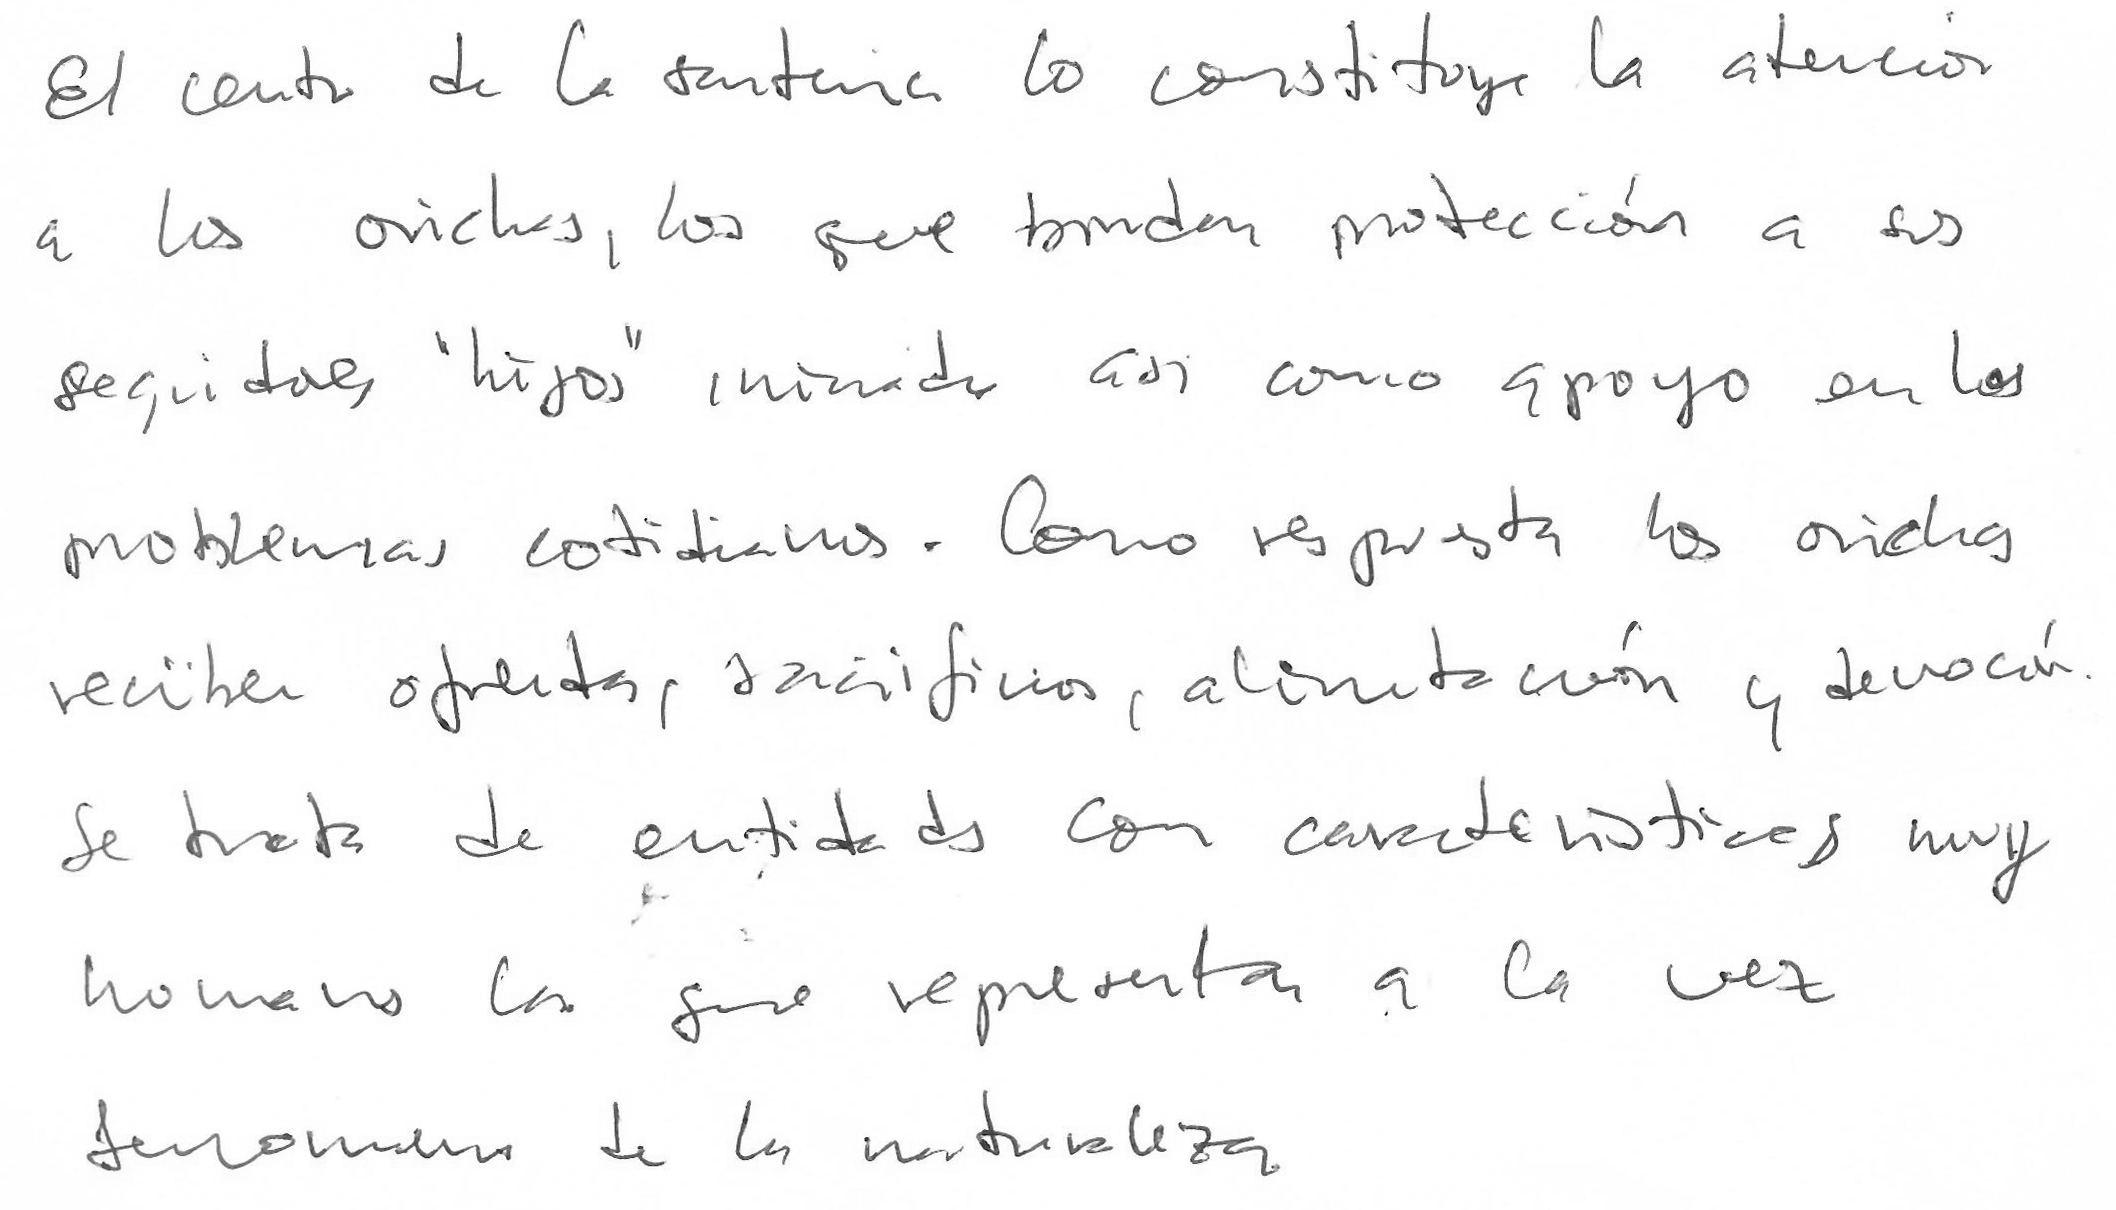 El centro de la santería lo constituye la atención
a los orichas, los que brindan protección a sus
seguidores "hijos" iniciados así como apoyo en los
problemas cotidianos. Como respuesta los orichas
reciben ofrendas, sacrificios, alimentación y devoción.
Se trata de entidades con características muy
humanas las que representan a la vez
fenómenos de la naturaleza